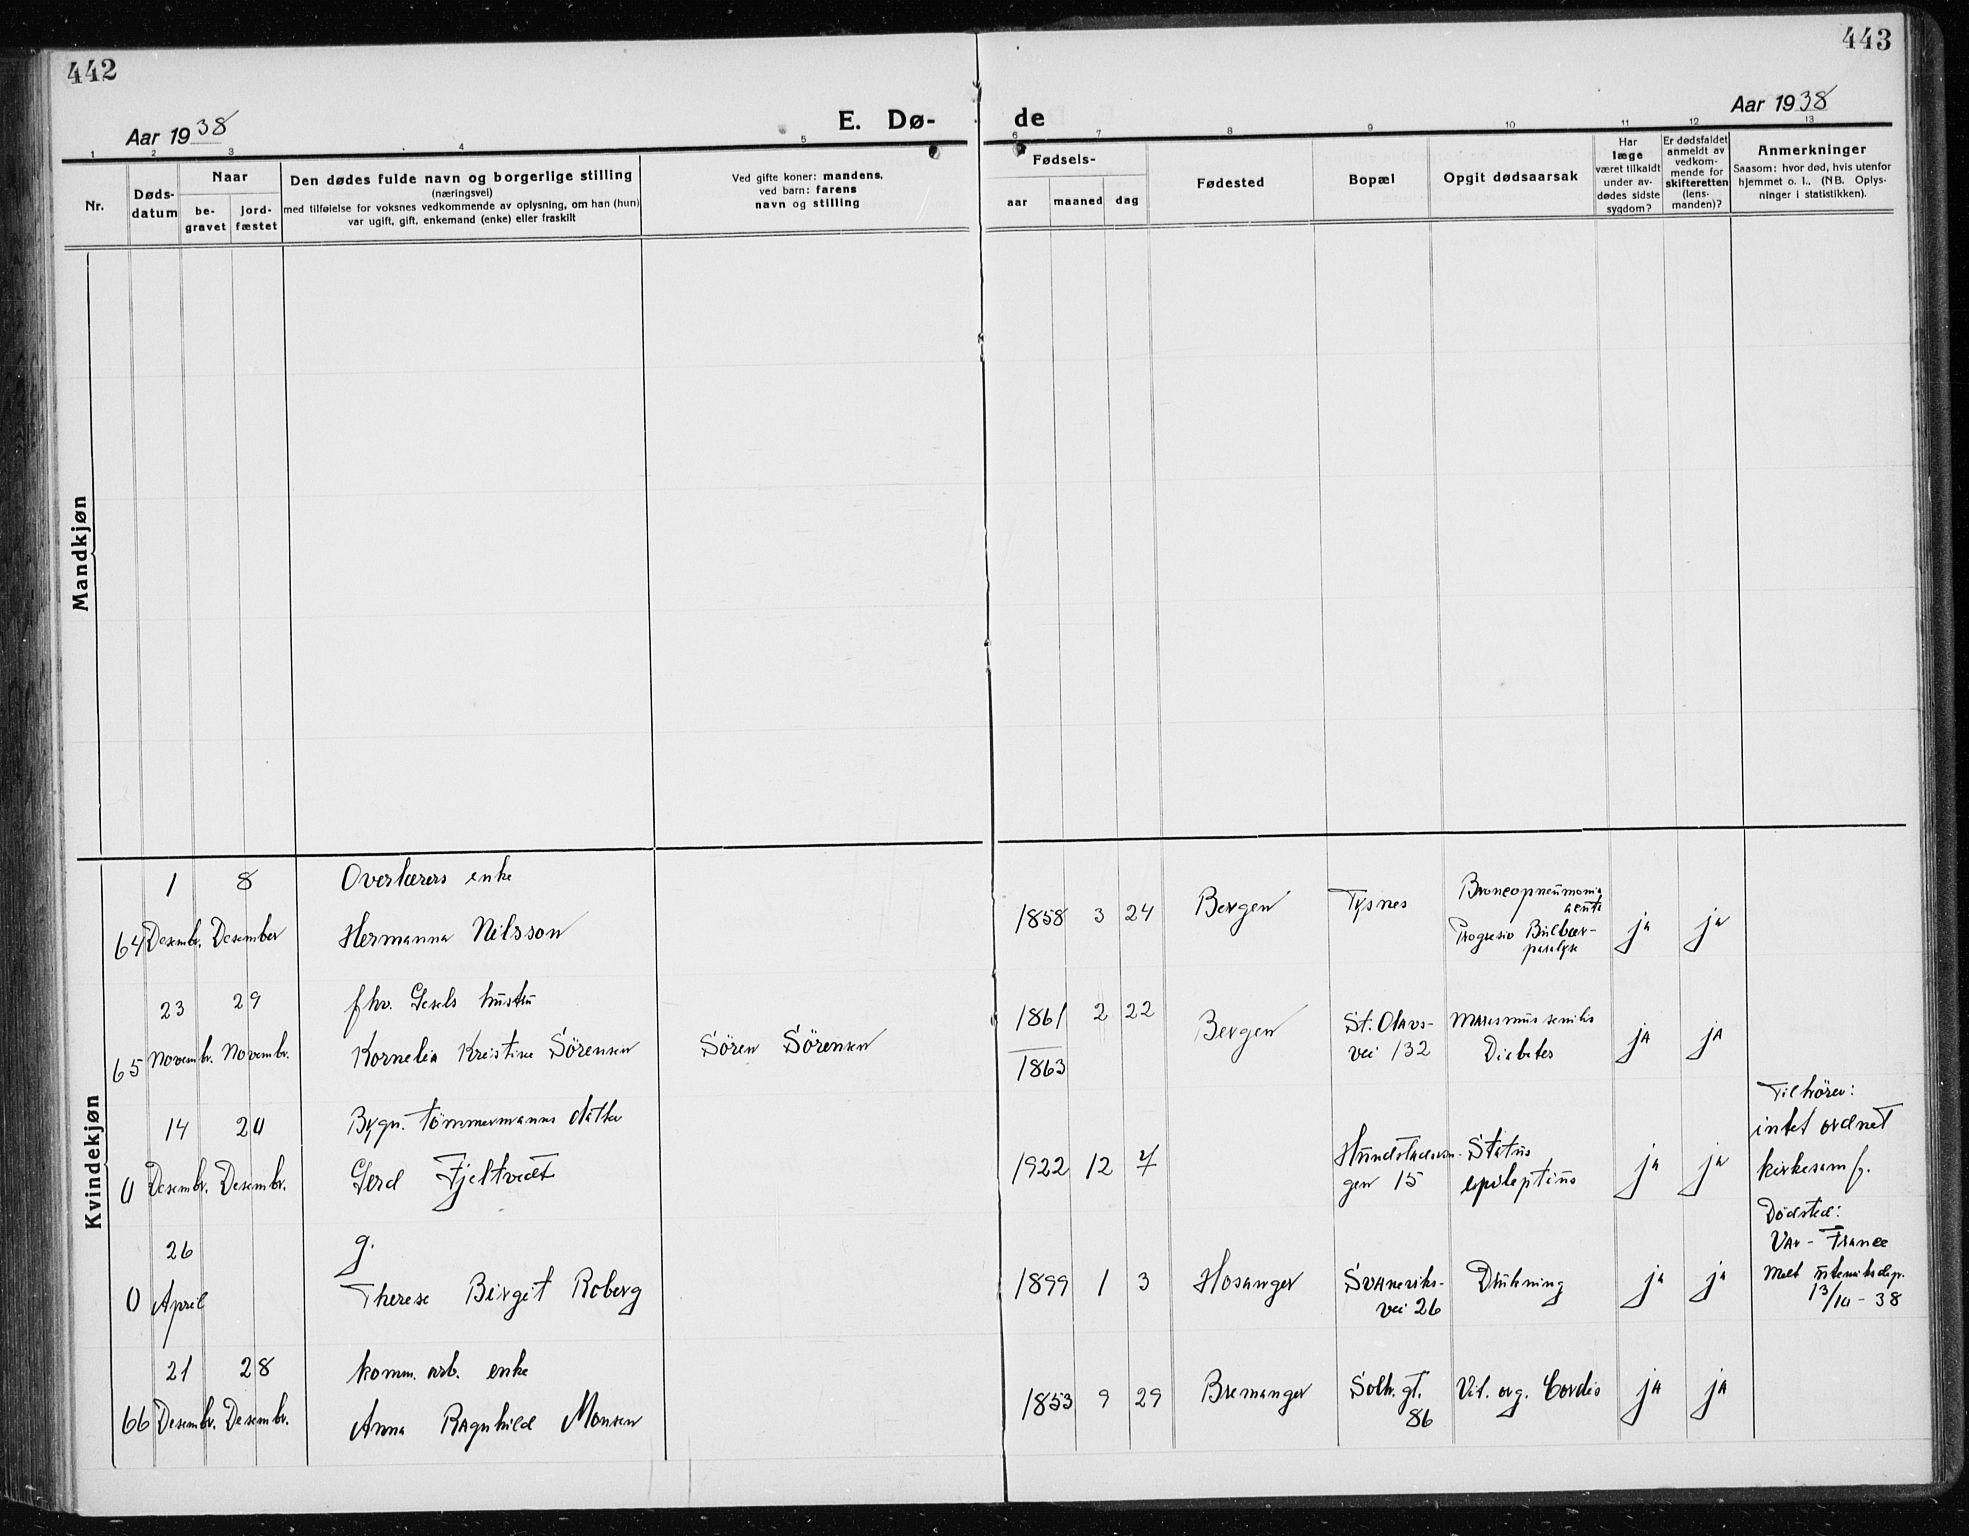 442
443
Aar 1938
E. Dø-
de
Aar 1938
1 2 3 4 5 6 7 8 9 10 11 12 13
Nr.
Døds-
datum
Naar
be-
gravet
jord-
fæstet
Den dødes fulde navn og borgerlige stilling
(næringsvei)
med tilføielse for voksnes vedkommende av oplysning, om han (hun)
var ugift, gift, enkemand (enke) eller fraskilt
Ved gifte koner: mandens,
ved barn: farens
navn og stilling
Fødsels-
aar maaned dag
Fødested
Bopæl
Opgit dødsaarsak
Har
læge
været tilkaldt
under av-
dødes sidste
sygdom?
Er dødsfaldet
anmeldt av
vedkom-
mende for
skifteretten
(lens-
manden)?
Anmerkninger
Saasom: hvor død, hvis utenfor
hjemmet o. l., (NB. Oplys-
ninger i statistikken).
Mandkjøn
Kvindekjøn
1 8 Overlærers enke
64 Desembr. Desember Hermanna Nilsson
1858 3 24 Bergen Tysnes Broncopneumonia
Bulbær-
paralyse
ja ja
23 29 fhv. hustru
65 Novembr. Novembr. Kornelia Kristine Sörensen Sören Sörensen
1861 2 22 Bergen St. Olavs-
vei 132
Marasmus senilis
Diabetes
ja ja
1863
14 20 Bygn. tömmermanns datter
0 Desembr. Desembr. Gerd Fjeltvedt
1922 12 7
gen 15
Status
epileptius
ja ja
Tilhörer:
intet ordnet
kirkesamf.
26 g.
0 April Therese Birgit Roberg
1899 1 3 Hosanger Svaneviks-
vei 26
Drukning
ja ja
Dödsted:
Var - France
Melt utenriksdep.
13/10 - 38
21 28 komm. arb. enke
66 Desembr. Desembr. Anna Ragnhild Monsen
1853 9 29 Bremanger Solh. gt.
86
Vit. org. Cordis
ja ja